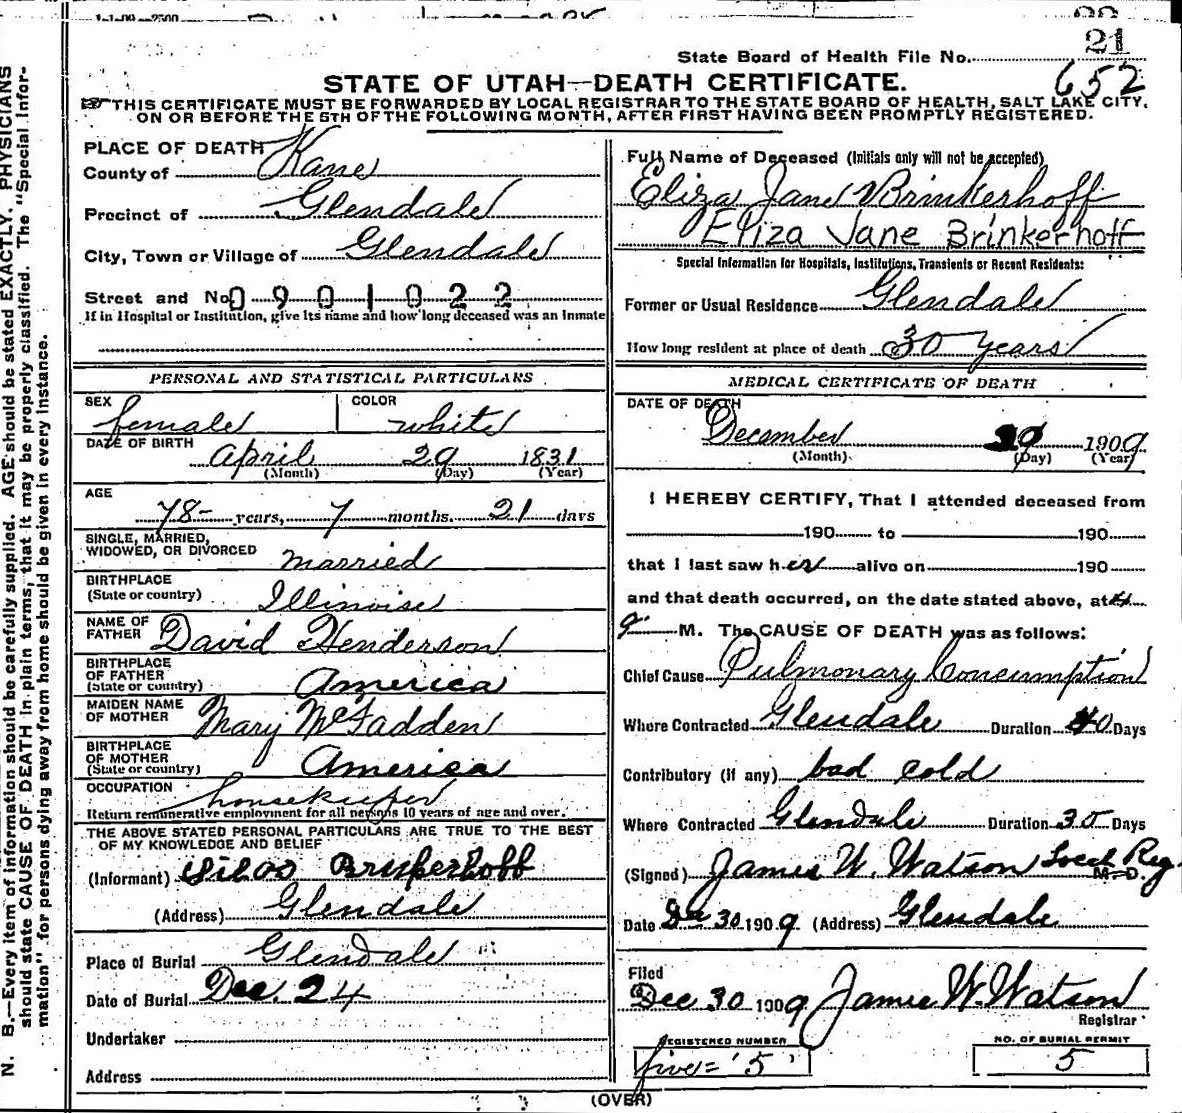 1-1-09—2500
21
State Board of Health File No.
652
STATE OF UTAH—DEATH CERTIFICATE.
THIS CERTIFICATE MUST BE FORWARDED BY LOCAL REGISTRAR TO THE STATE BOARD OF HEALTH, SALT LAKE CITY,
ON OR BEFORE THE 5TH OF THE FOLLOWING MONTH, AFTER FIRST HAVING BEEN PROMPTLY REGISTERED.
PLACE OF DEATH
County of Kane
Precinct of Glendale
City, Town or Village of Glendale
Street and No. 0901022
If in Hospital or Institution, give its name and how long deceased was an inmate
PERSONAL AND STATISTICAL PARTICULARS
SEX female COLOR white
DATE OF BIRTH
April 29 1831
(Month) (Day) (Year)
AGE
78 years, 7 months. 21 days
SINGLE, MARRIED,
WIDOWED, OR DIVORCED married
BIRTHPLACE
(State or country) Illinoise
NAME OF
FATHER David Henderson
BIRTHPLACE
OF FATHER
(State or country) America
MAIDEN NAME
OF MOTHER Mary McFadden
BIRTHPLACE
OF MOTHER
(State or country) America
OCCUPATION housekeeper
Return remunerative employment for all persons 10 years of age and over.
THE ABOVE STATED PERSONAL PARTICULARS ARE TRUE TO THE BEST
OF MY KNOWLEDGE AND BELIEF
(Informant)
(Address) Glendale
Place of Burial Glendale
Date of Burial Dec. 24
Undertaker
Address
Full Name of Deceased (Initials only will not be accepted)
Eliza Jane Brinkerhoff
Eliza Jane Brinkerhoff
Special Information for Hospitals, Institutions, Transients or Recent Residents:
Former or Usual Residence Glendale
How long resident at place of death 30 years
MEDICAL CERTIFICATE OF DEATH
DATE OF DEATH
December 1909
(Month) (Day) (Year)
I HEREBY CERTIFY, That I attended deceased from
190 to 190
that I last saw her alive on 190
and that death occurred, on the date stated above, at 4
M. The CAUSE OF DEATH was as follows:
Chief Cause Pulmonary Concumption
Where Contracted Glendale Duration 40 Days
Contributory (if any) bad cold
Where Contracted Glendale Duration 30 Days
(Signed) James W. Watson Local Reg.
M.D.
Date Dec 30 1909 (Address) Glendale
Filed
Dec 30 1909 James W. Watson
Registrar
REGISTERED NUMBER
five = '5'
NO. OF BURIAL PERMIT
5
(OVER)
N. B.—Every item of information should be carefully supplied. AGE should be stated EXACTLY. PHYSICIANS
should state CAUSE OF DEATH in plain terms, that it may be properly classified. The "Special Infor-
mation" for persons dying away from home should be given in every instance.